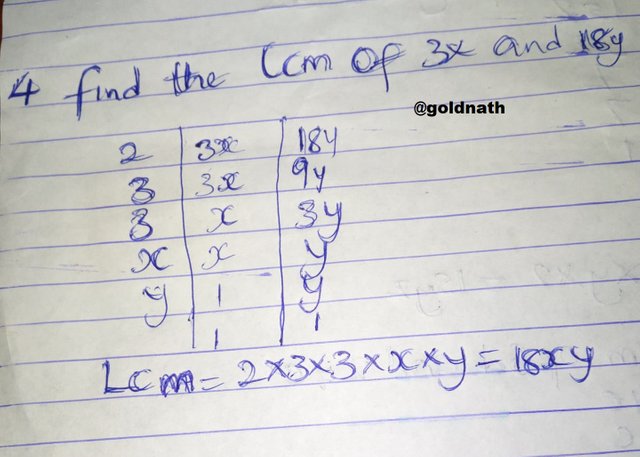 4 find the Lcm of 3x and 18y
@goldnath
2 3x 18y
3 3x 9y
3 x 3y
x x y
y 1 y
1 1
Lcm = 2×3×3×x×y = 18xy